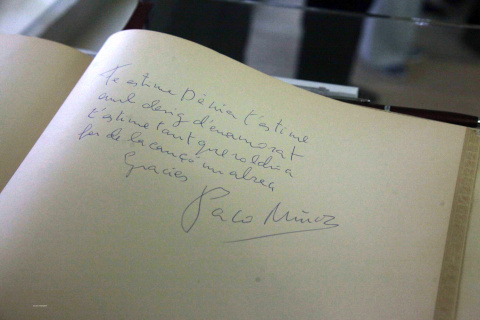 Te estime Dénia t'estime
amb desig d'enamorat
t'estime tant que voldria
fer de la cançó un abraç
Gracies
Paco Muñoz